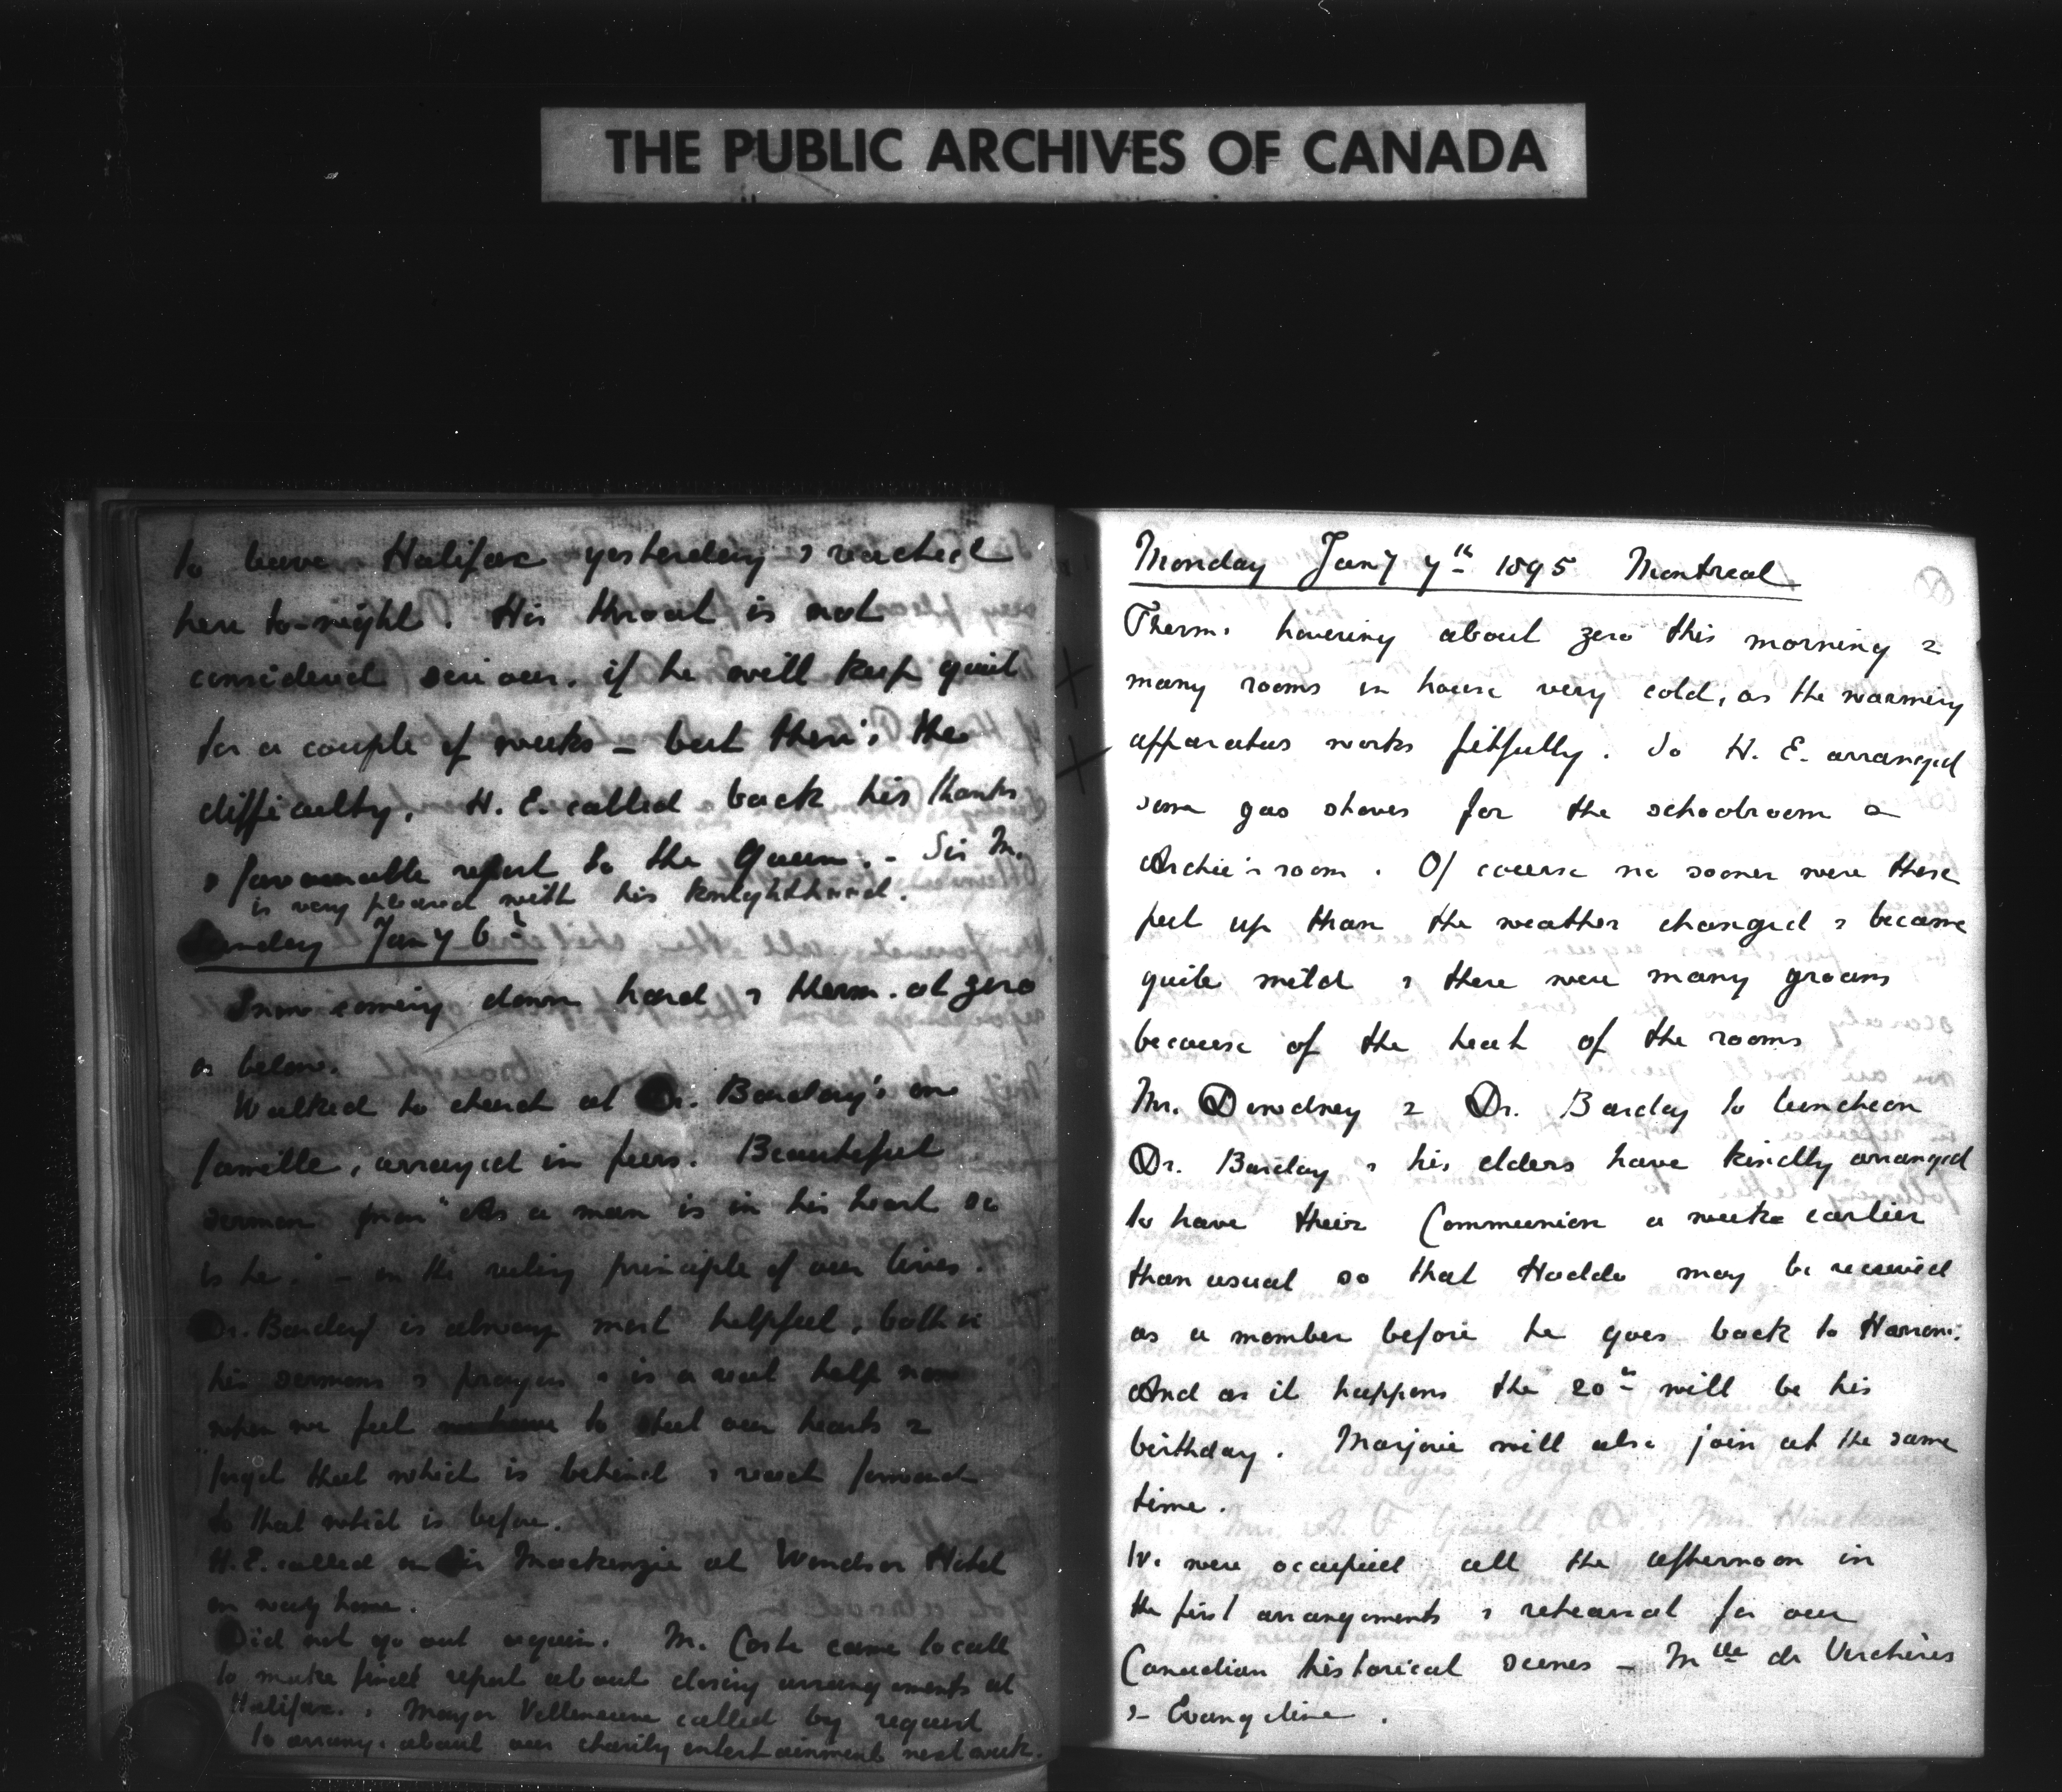 THE PUBLIC ARCHIVES OF CANADA
to leave Halifax yesterday & reached
here to-night. His throat is not
considered serious, if he will keep quiet
for a couple of weeks – but there's the
difficulty. H. E. called back his thanks
& favourable report to the Queen. – Sir M.
is very pleased with his knighthood.
Sunday Jany 6th
Snow coming down hard & therm. at zero
or below.
Walked to church at Dr. Barclay's en
famille, arrayed in furs. Beautiful
sermon from "As a man is in his heart so
is he." – on the ruling principle of our lives.
Dr. Barclay is always most helpful, both in
his sermons & prayers & is a real help now
when we feel to our hearts &
forget that which is behind & reach forward
to that which is before.
H.E. called on Sir Mackenzie at Windsor Hotel
on way home.
Did not go out again. Mr. Coste came to call
to make final report about closing arrangements at
Halifax. & Mayor Villeneuve called by request
to arrange about our charity entertainment next week.
Monday Jany 7th 1895 Montreal
Therm. hovering about zero this morning &
many rooms in house very cold, as the warming
apparatus works fitfully. So H. E. arranged
some gas stoves for the schoolroom &
Archie's room. Of course no sooner were these
put up than the weather changed & became
quite mild & there were many groans
because of the heat of the rooms
Mr. Dewdney & Dr. Barclay to luncheon
Dr. Barclay & his elders have kindly arranged
to have their Communion a week earlier
than usual so that Haddo may be received
as a member before he goes back to Harrow.
And as it happens the 20th will be his
birthday. Marjorie will also join at the same
time.
We were occupied all the afternoon in
the first arrangements & rehearsal for our
Canadian historical scenes – Mlle de Verchères
& Evangeline.